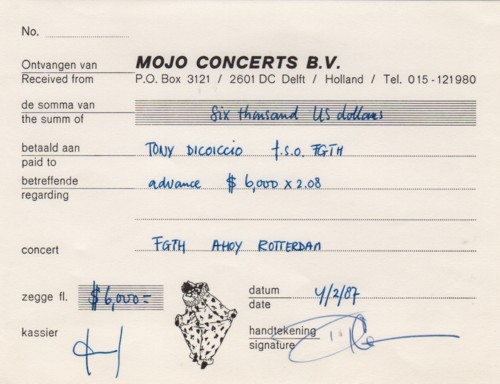 No.
Ontvangen van MOJO CONCERTS B.V.
Received from P.O. Box 3121 / 2601 DC Delft / Holland / Tel. 015-121980
de somma van
the summ of Six thousand US dollars
betaald aan
paid to TONY DICOICCIO f.s.o. FGTH
betreffende
regarding advance $ 6,000 x 2.08
concert FGTH AHOY ROTTERDAM
zegge fl. $ 6,000=
datum
date 4/2/87
kassier
handtekening
signature